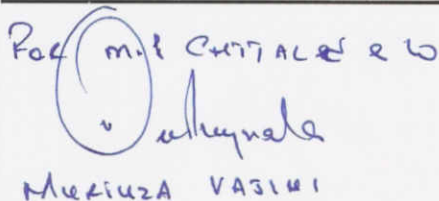 For M.P CHITALE & Co
MURTUZA VAJIHI